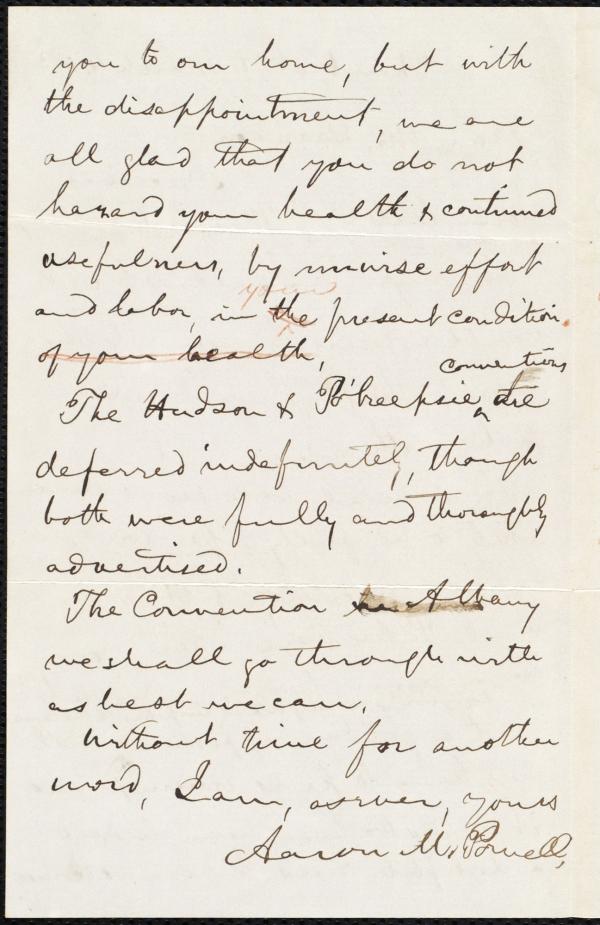 you to our home, but with
the disappointment, we are
all glad that you do not
hazard your health & continued
usefulness, by unwise effort
your
and labor, in the present condition.
of your health,
conventions
The Hudson & Po'keepsie, are
deferred indefinitely, though
both were fully and thoroughly
advertised.
The Convention in Albany
we shall go through with
as best we can.
Without time for another
word, I am, as ever, yours
Aaron M. Powell,